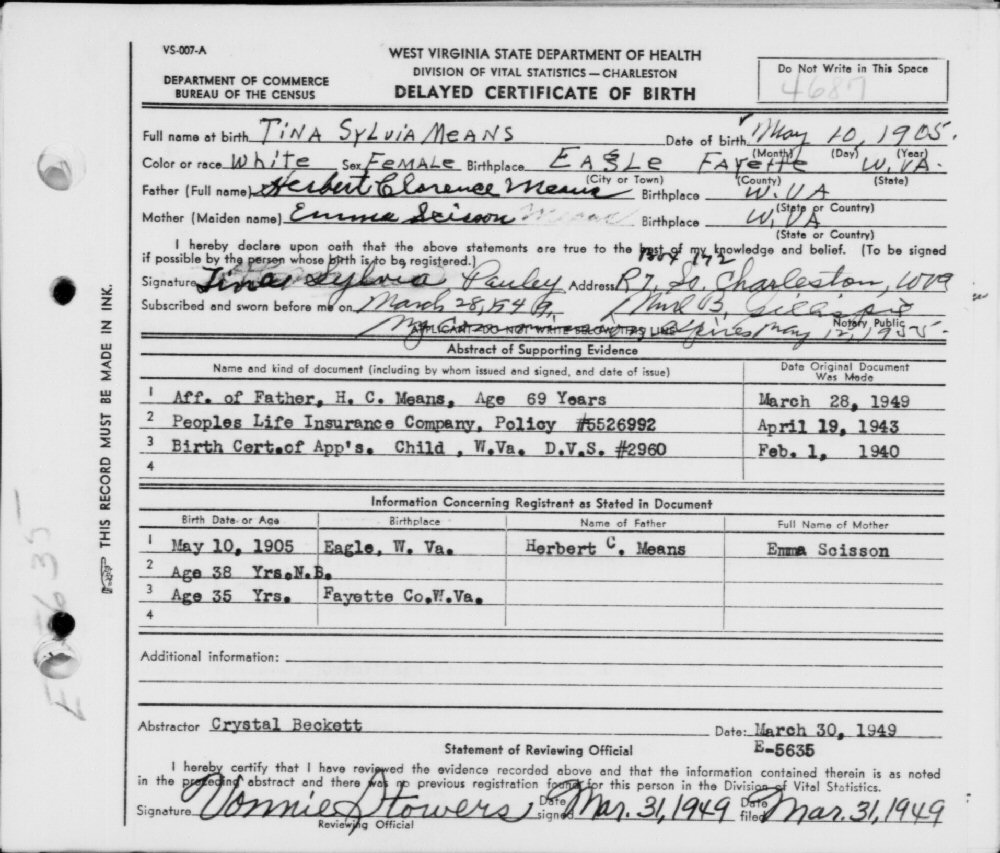 VS-007-A
WEST VIRGINIA STATE DEPARTMENT OF HEALTH
DIVISION OF VITAL STATISTICS — CHARLESTON
DELAYED CERTIFICATE OF BIRTH
DEPARTMENT OF COMMERCE
BUREAU OF THE CENSUS
Do Not Write in This Space
4687
Full name at birth TINA SYLVIA MEANS Date of birth May 10, 1905.
(Month) (Day) (Year)
Color or race White Sex FEMALE Birthplace EAGLE FAYETTE W.VA.
(City or Town) (County) (State)
Father (Full name) Herbert Clorence Means Birthplace W.VA
(State or Country)
Mother (Maiden name) Emma Scisson Means Birthplace W.VA
(State or Country)
I hereby declare upon oath that the above statements are true to the best of my knowledge and belief. (To be signed
if possible by the person whose birth is to be registered.) Box 142
Signature Tina Sylvia Pauley Address R7, So. Charleston, WVA
Subscribed and sworn before me on March 28, 1949,
Notary Public
My Commission expires May 12, 1955.
APPLICANT DO NOT WRITE BELOW THIS LINE
Abstract of Supporting Evidence
Name and kind of document (including by whom issued and signed, and date of issue) Date Original Document
Was Made
1 Aff. of Father, H. C. Means, Age 69 Years March 28, 1949
2 Peoples Life Insurance Company, Policy #5526992 April 19, 1943
3 Birth Cert.of App's. Child , W.Va. D.V.S. #2960 Feb. 1, 1940
4
Information Concerning Registrant as Stated in Document
Birth Date or Age Birthplace Name of Father Full Name of Mother
1 May 10, 1905 Eagle, W. Va. Herbert C. Means Emma Scisson
2 Age 38 Yrs.N.B.
3 Age 35 Yrs. Fayette Co.W.Va.
4
Additional information:
Abstractor Crystal Beckett Date: March 30, 1949
Statement of Reviewing Official E-5635
I hereby certify that I have reviewed the evidence recorded above and that the information contained therein is as noted
in the preceding abstract and there was no previous registration found for this person in the Division of Vital Statistics.
Signature Vonnie Stowers, Date signed Mar. 31, 1949 Date filed Mar. 31, 1949
Reviewing Official
THIS RECORD MUST BE MADE IN INK.
E-5635